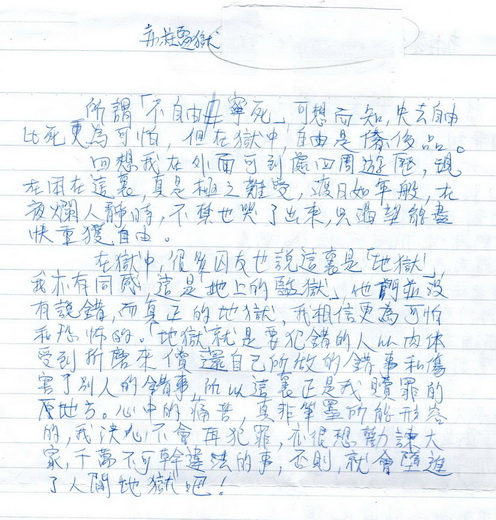 所謂「不自由毋寧死」可想而知,失去自由
比死更為可怕,但在獄中,自由是僑俊品。
回想我在外面可到處四周遊歷,現
在困在這裏,真是極之難受,渡日如年般,在
夜爛人靜時,不禁也哭了出來,只渴望能盡
快重獲自由。
在獄中,很多囚友也說這裏是「地獄」,
我亦有同感,這是「地上的監獄」,他們並沒
有說錯,而真正的地獄,我相信更為可怕
和恐怖的。地獄就是要犯錯的人以肉体
受到折磨來償還自己所做的錯事和傷
害了別人的錯事,所以這裏正是我贖罪的
地方。心中的痛苦,真非筆墨所能形容
的,我決心不會再犯罪,亦很想勸諫大
家,千萬不可幹違法的事,否則,就會墮進
了人間地獄吧!